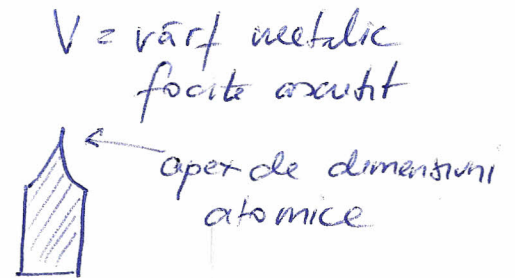 V = vârf metalic
foarte ascuțit
apex de dimensiuni
atomice